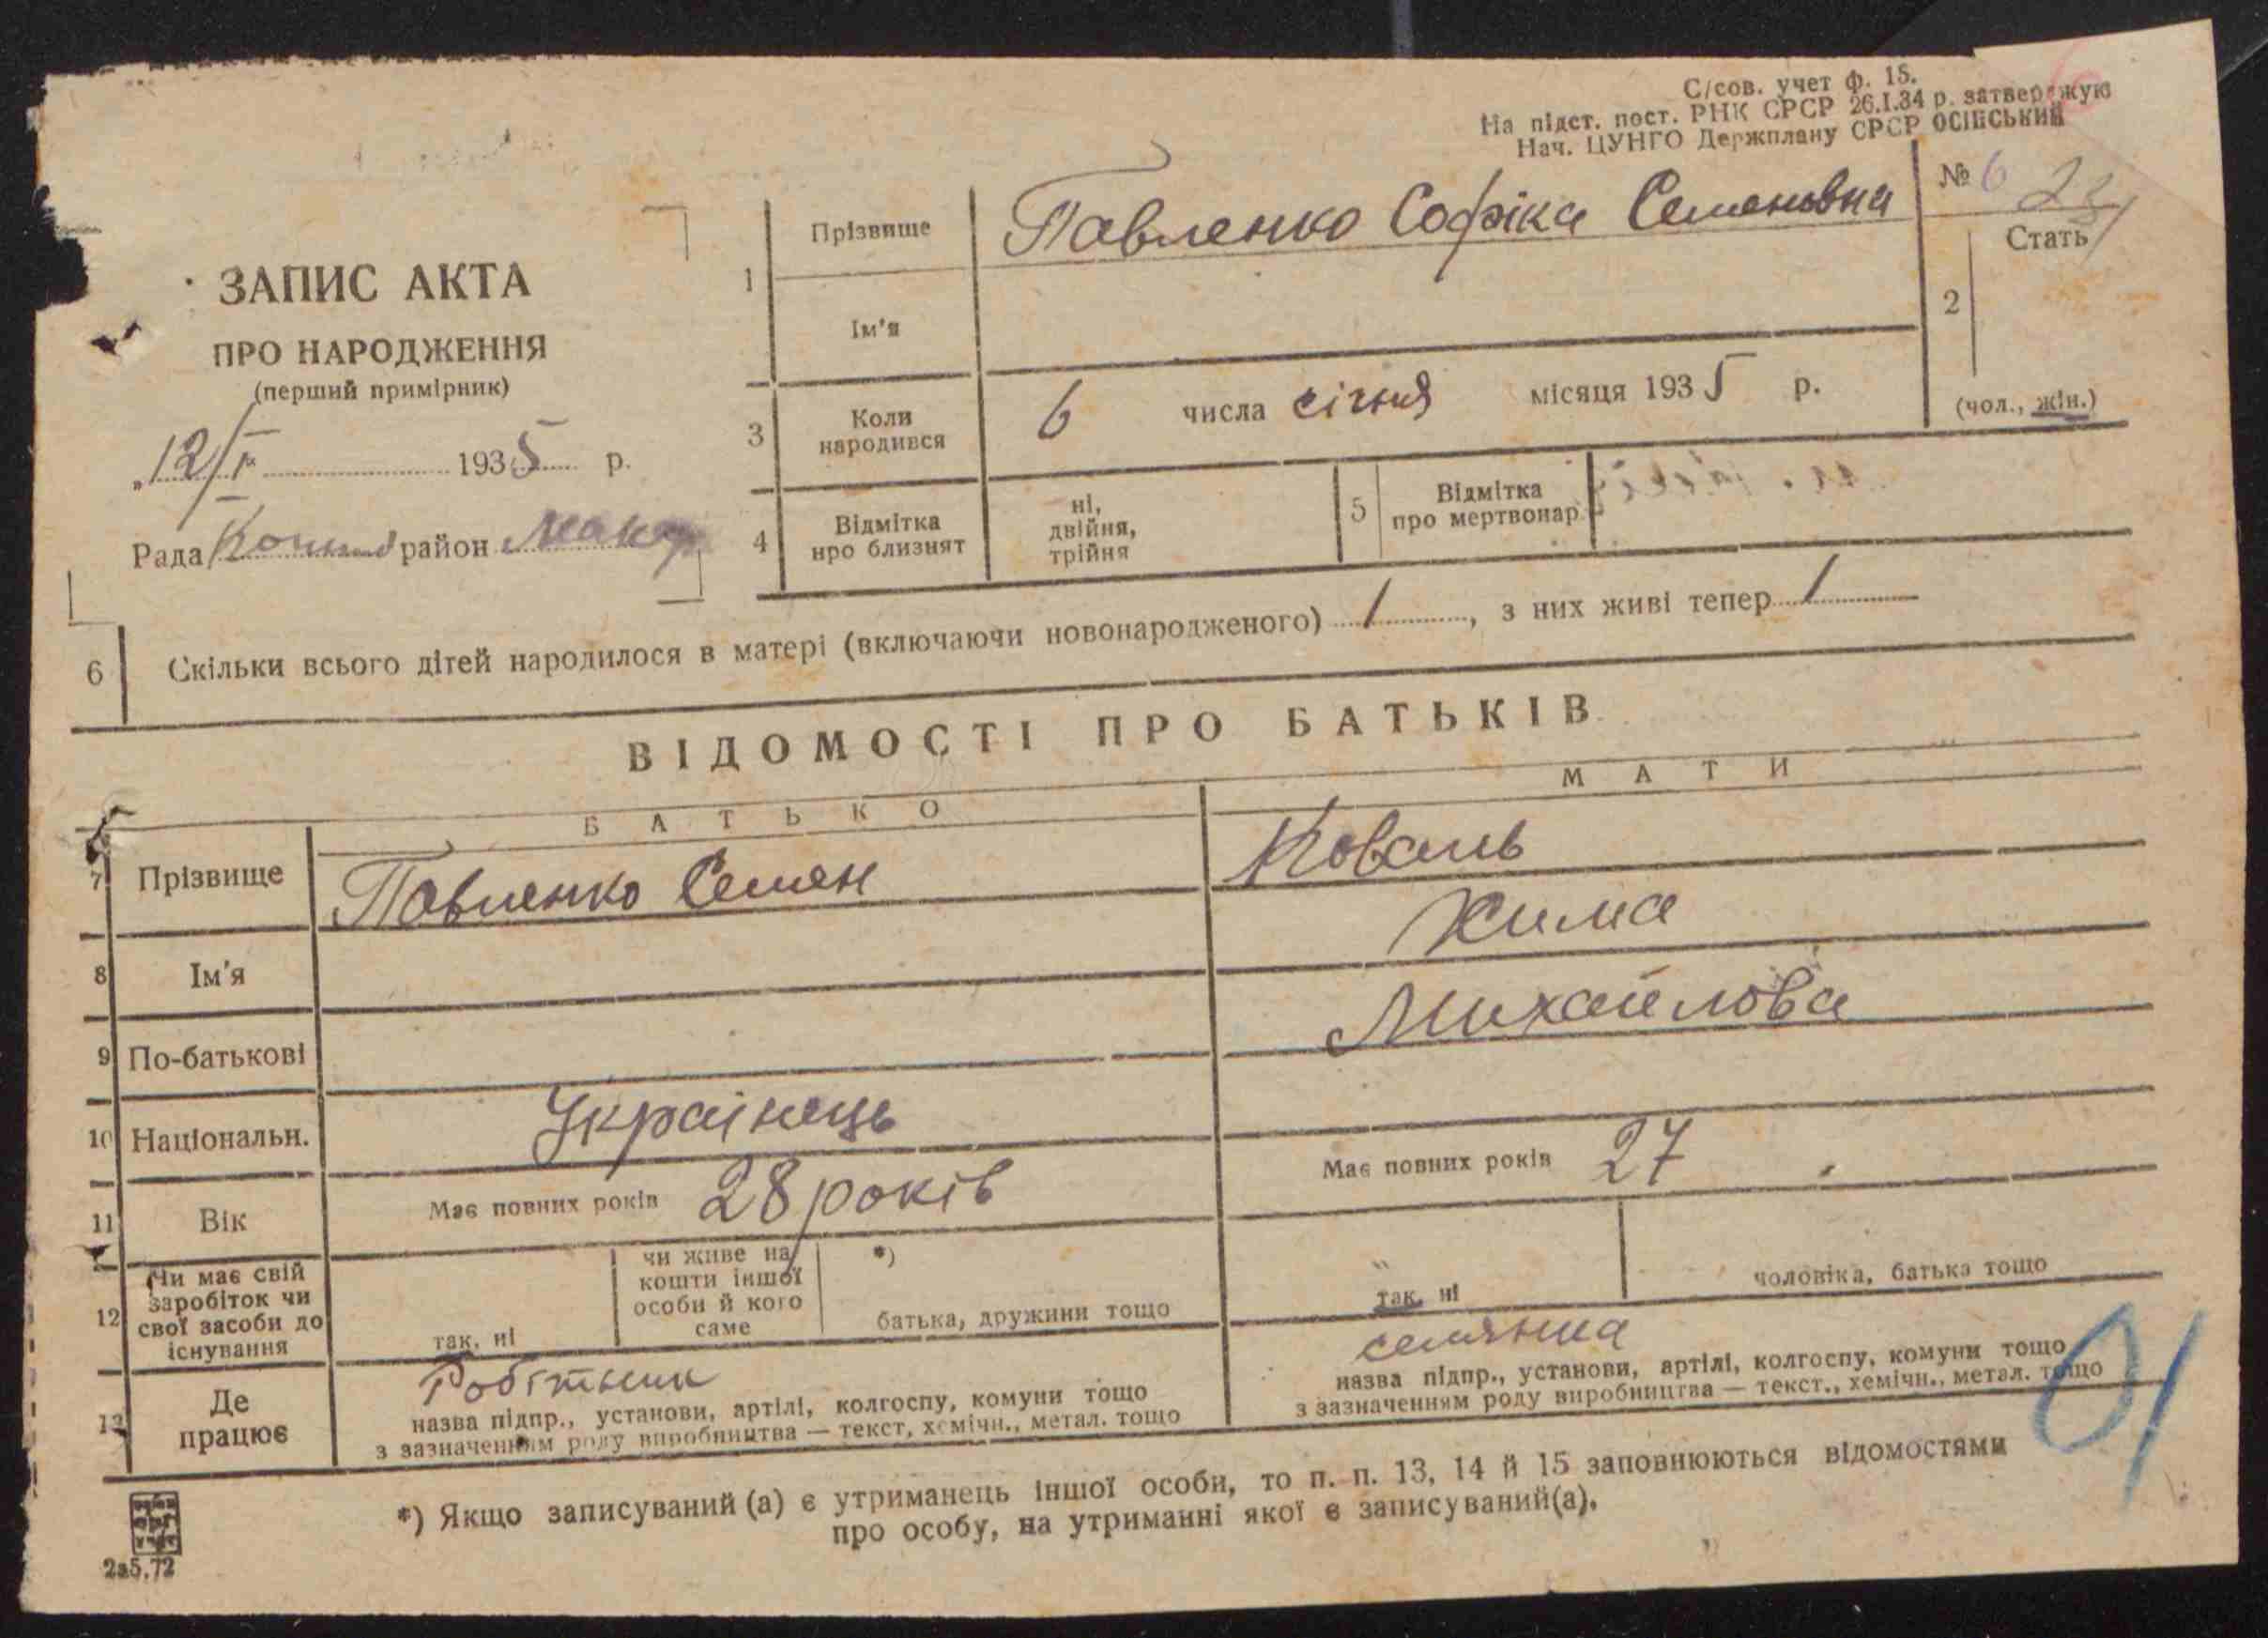 С/сов. учет ф. 15.
На підст. пост. РНК СРСР 26.I.34 р. затверджую
Нач. ЦУНГО Держплану СРСР ОСІНСЬКИЙ
ЗАПИС АКТА
ПРО НАРОДЖЕННЯ
(перший примірник)
„12/I 1935 р.
Рада район Макар
1 Прізвище Павленко Софіка Семеновна
Ім'я
№ 6 23
2 Стать
(чол., жін.)
3 Коли народився 6 числа січня місяця 1935 р.
4 Відмітка про близнят ні, двійня, трійня
5 Відмітка про мертвонар.
6 Скільки всього дітей народилося в матері (включаючи новонародженого) 1, з них живі тепер 1
ВІДОМОСТІ ПРО БАТЬКІВ
БАТЬКО МАТИ
7 Прізвище Павленко Семен Коваль
8 Ім'я Хима
9 По-батькові Михайлова
10 Національн. Українець
11 Вік Має повних років 28 років Має повних років 27
12 Чи має свій заробіток чи свої засоби до існування
так, ні
чи живе на кошти іншої особи й кого саме
*)
батька, дружини тощо
так, ні
чоловіка, батька тощо
13 Де працює
Робітник
назва підпр., установи, артілі, колгоспу, комуни тощо
з зазначенням роду виробництва — текст, хемічн., метал. тощо
селянка
назва підпр., установи, артілі, колгоспу, комуни тощо
з зазначенням роду виробництва — текст., хемічн., метал. тощо
*) Якщо записуваний (а) є утриманець іншої особи, то п. п. 13, 14 й 15 заповнюються відомостями
про особу, на утриманні якої є записуваний(а).
2з5.72